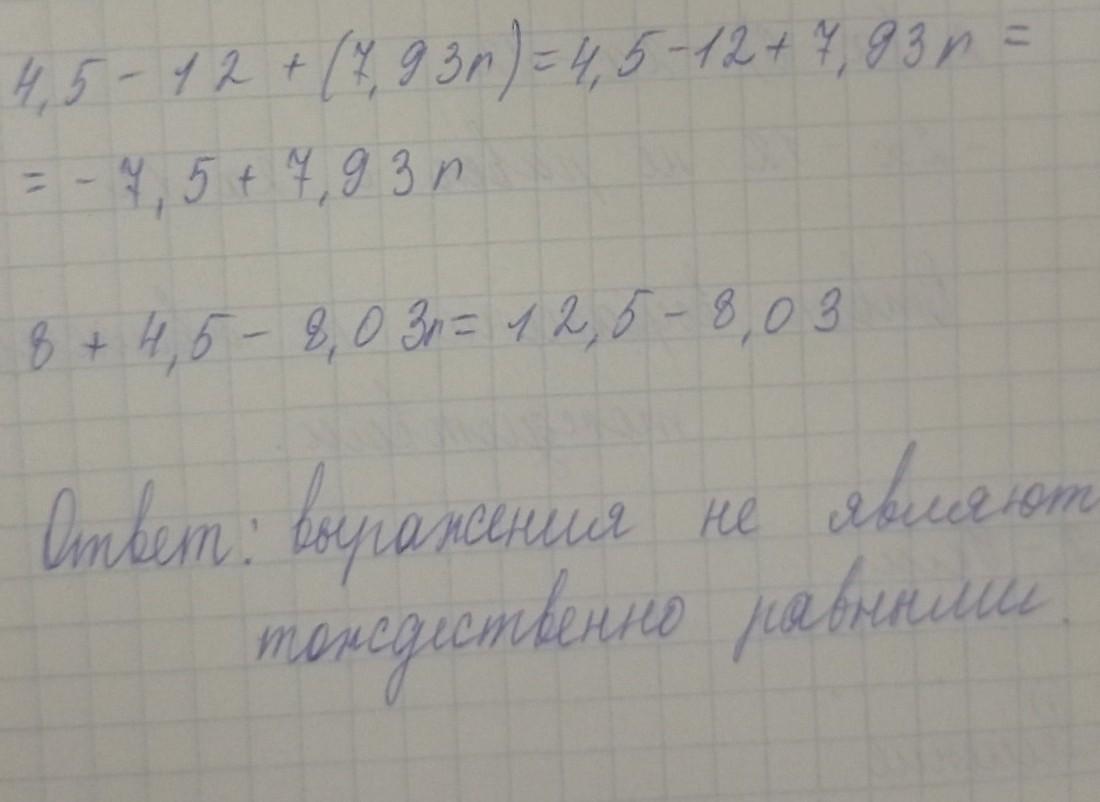 4,5 - 12 + (7,93n) = 4,5 - 12 + 7,93n =
= - 7,5 + 7,93n
8 + 4,5 - 8,03n = 12,5 - 8,03
Ответ: выражения не являют
тождественно равными.